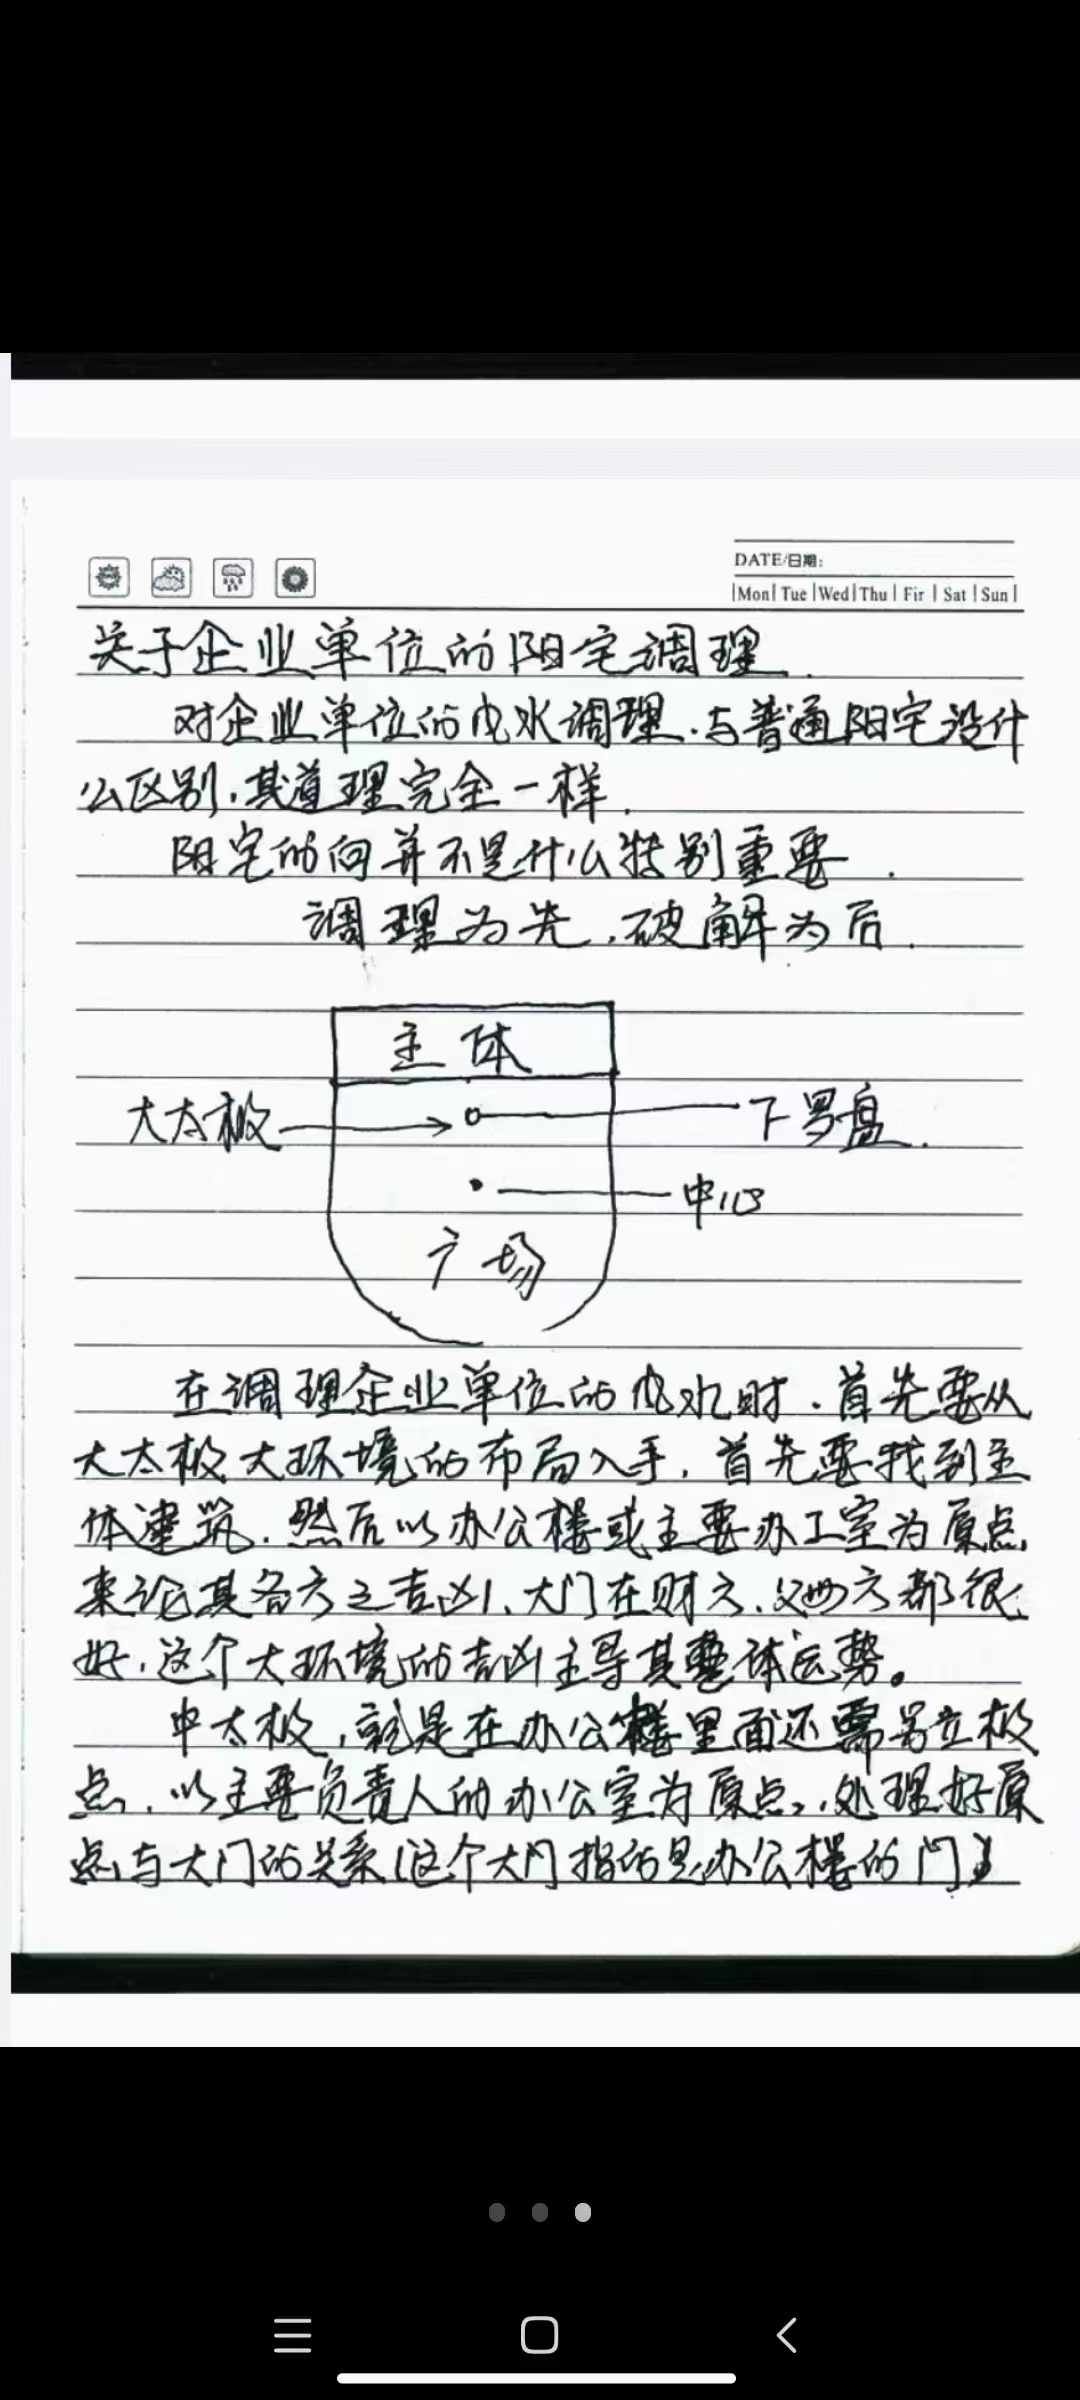 DATE/日期:
Mon Tue Wed Thu Fir Sat Sun
关于企业单位的阳宅调理.
对企业单位的风水调理.与普通阳宅没什
么区别,其道理完全一样.
阳宅的向并不是什么特别重要.
调理为先,破解为后.
主体
大太极
下罗盘.
中心
广场
在调理企业单位的风水时.首先要从
大太极大环境的布局入手,首先要找到主
体建筑.然后以办公楼或主要办工室为原点
来论其各方之吉凶、大门在财方、父母方都很
好,这个大环境的吉凶主导其整体运势。
中太极,就是在办公楼里面还需另立极
点.以主要负责人的办公室为原点,处理好原
点与大门的关系(这个大门指的是办公楼的门)